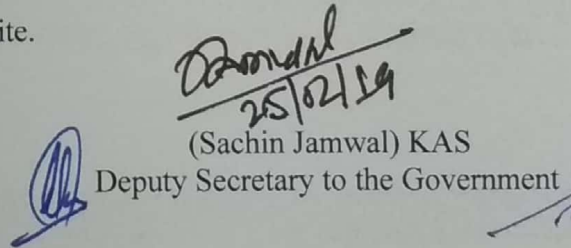 ite.
25/02/19
(Sachin Jamwal) KAS
Deputy Secretary to the Government